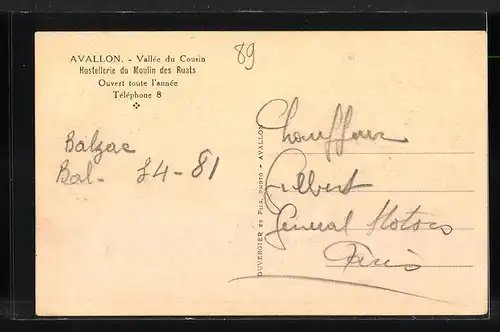 89
AVALLON. - Vallée du Cousin
Hostellerie du Moulin des Ruats
Ouvert toute l'année
Téléphone 8
Balzac
Bal- 24-81
DUVERGIER ET FILS, PHOTO - AVALLON
Chauffeur
Gilbert
General Motors
Paris